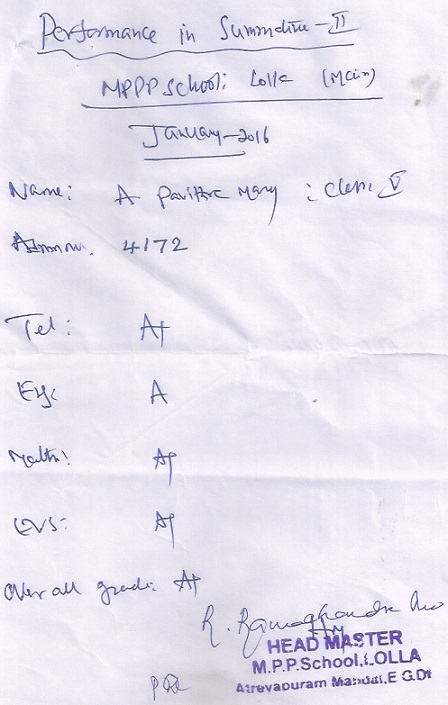 Performance in Summative - II
MPPP School: Lolla (Main)
January - 2016
Name: A Pavithra Mary : Class: V
Admn no. 4172
Tel: A+
Eng: A
Maths: A+
EVS: A+
Over all grade: A+
R. Ramachandra Rao
HM
HEAD MASTER
M.P.P.School, LOLLA
Atreyapuram Mandal, E.G.Dt